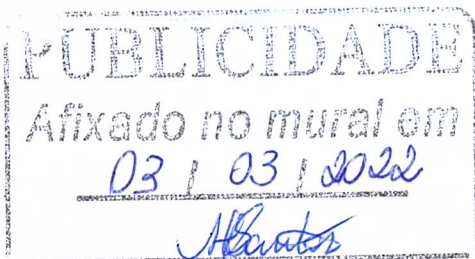 PUBLICIDADE
Afixado no mural em
03 / 03 / 2022